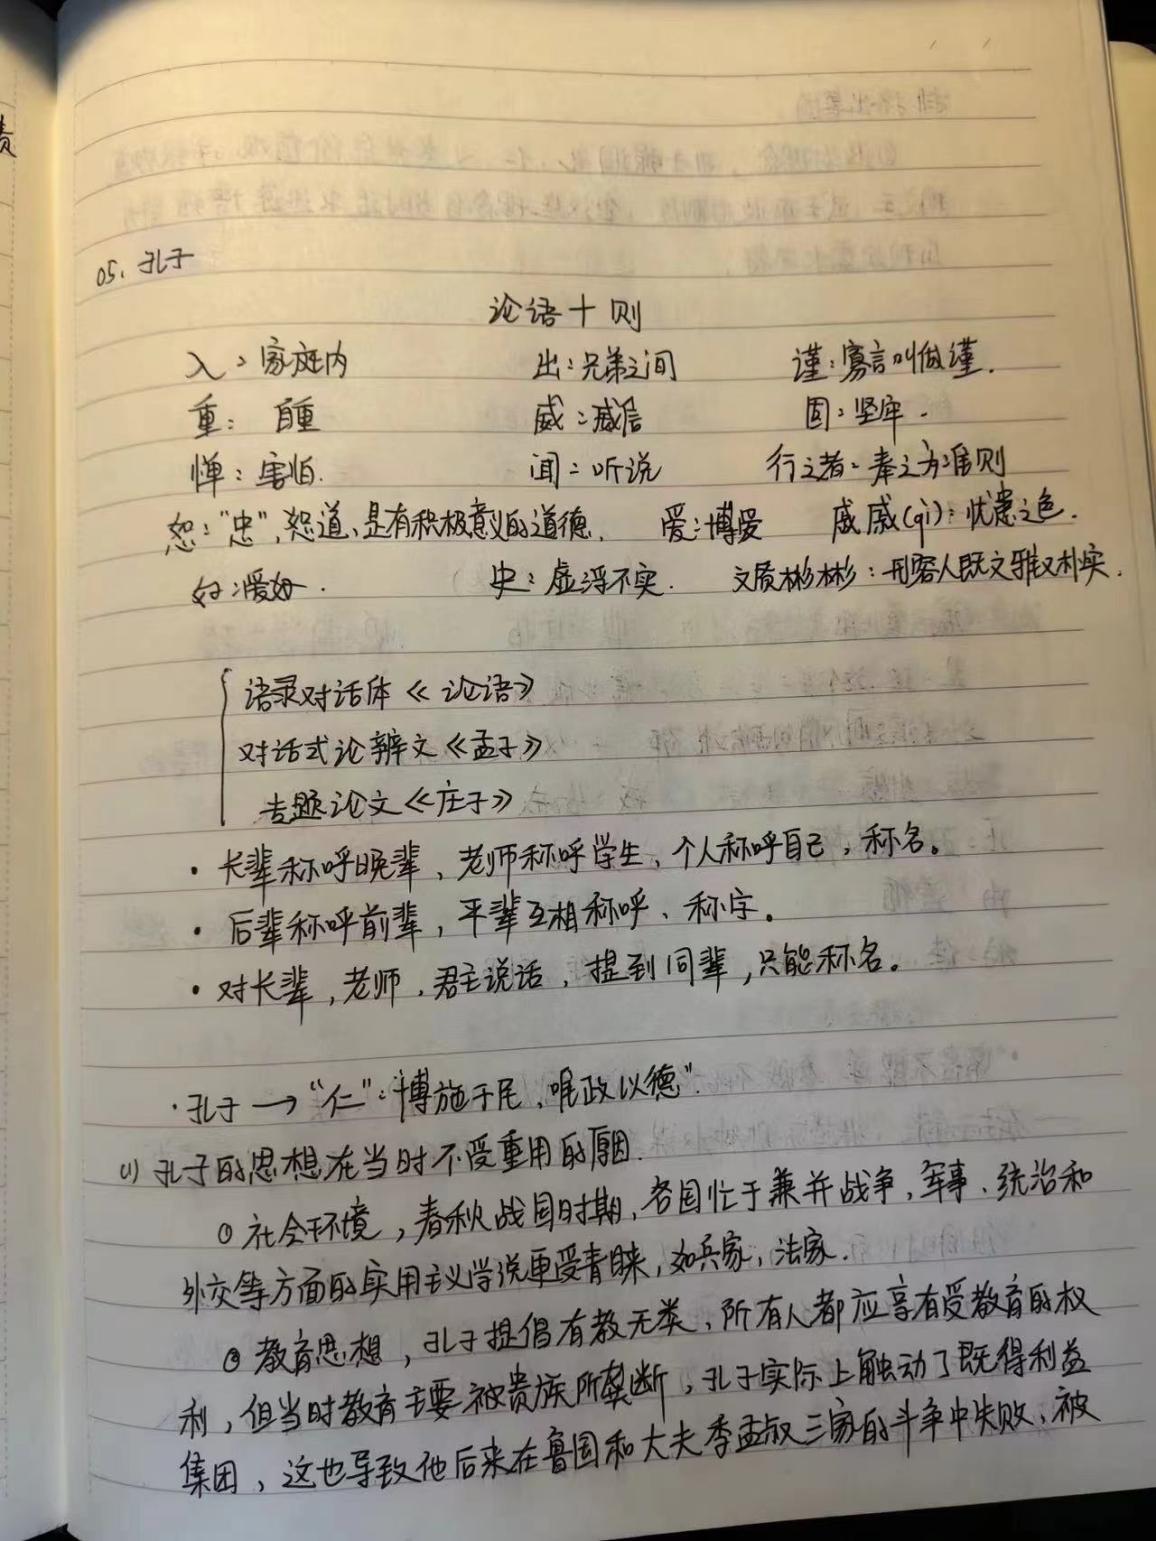 05. 孔子
论语十则
入：家庭内 出：兄弟之间 谨：寡言叫做谨.
重：自重 威：威信 固：坚牢.
惮：害怕. 闻：听说 行之者：奉之为准则
恕："忠"、恕道、是有积极意义的道德. 爱：博爱 戚戚(qi)：忧患之色.
好：爱好. 史：虚浮不实. 文质彬彬：形容人既文雅又朴实.
语录对话体《论语》
对话式论辨文《孟子》
专题论文《庄子》
· 长辈称呼晚辈，老师称呼学生、个人称呼自己，称名。
· 后辈称呼前辈，平辈互相称呼、称字。
· 对长辈，老师、君主说话，提到同辈，只能称名。
·孔子→"仁"：博施于民、呢政以德"
(1) 孔子的思想在当时不受重用的原因.
① 社会环境，春秋战国时期，各国忙于兼并战争，军事、统治和
外交等方面的实用主义学说更受青睐，如兵家，法家.
② 教育思想，孔子提倡有教无类、所有人都应享有受教育的权
利，但当时教育主要被贵族所垄断，孔子实际上触动了既得利益
集团，这也导致他后来在鲁国和大夫季孟叔三家的斗争中失败、被